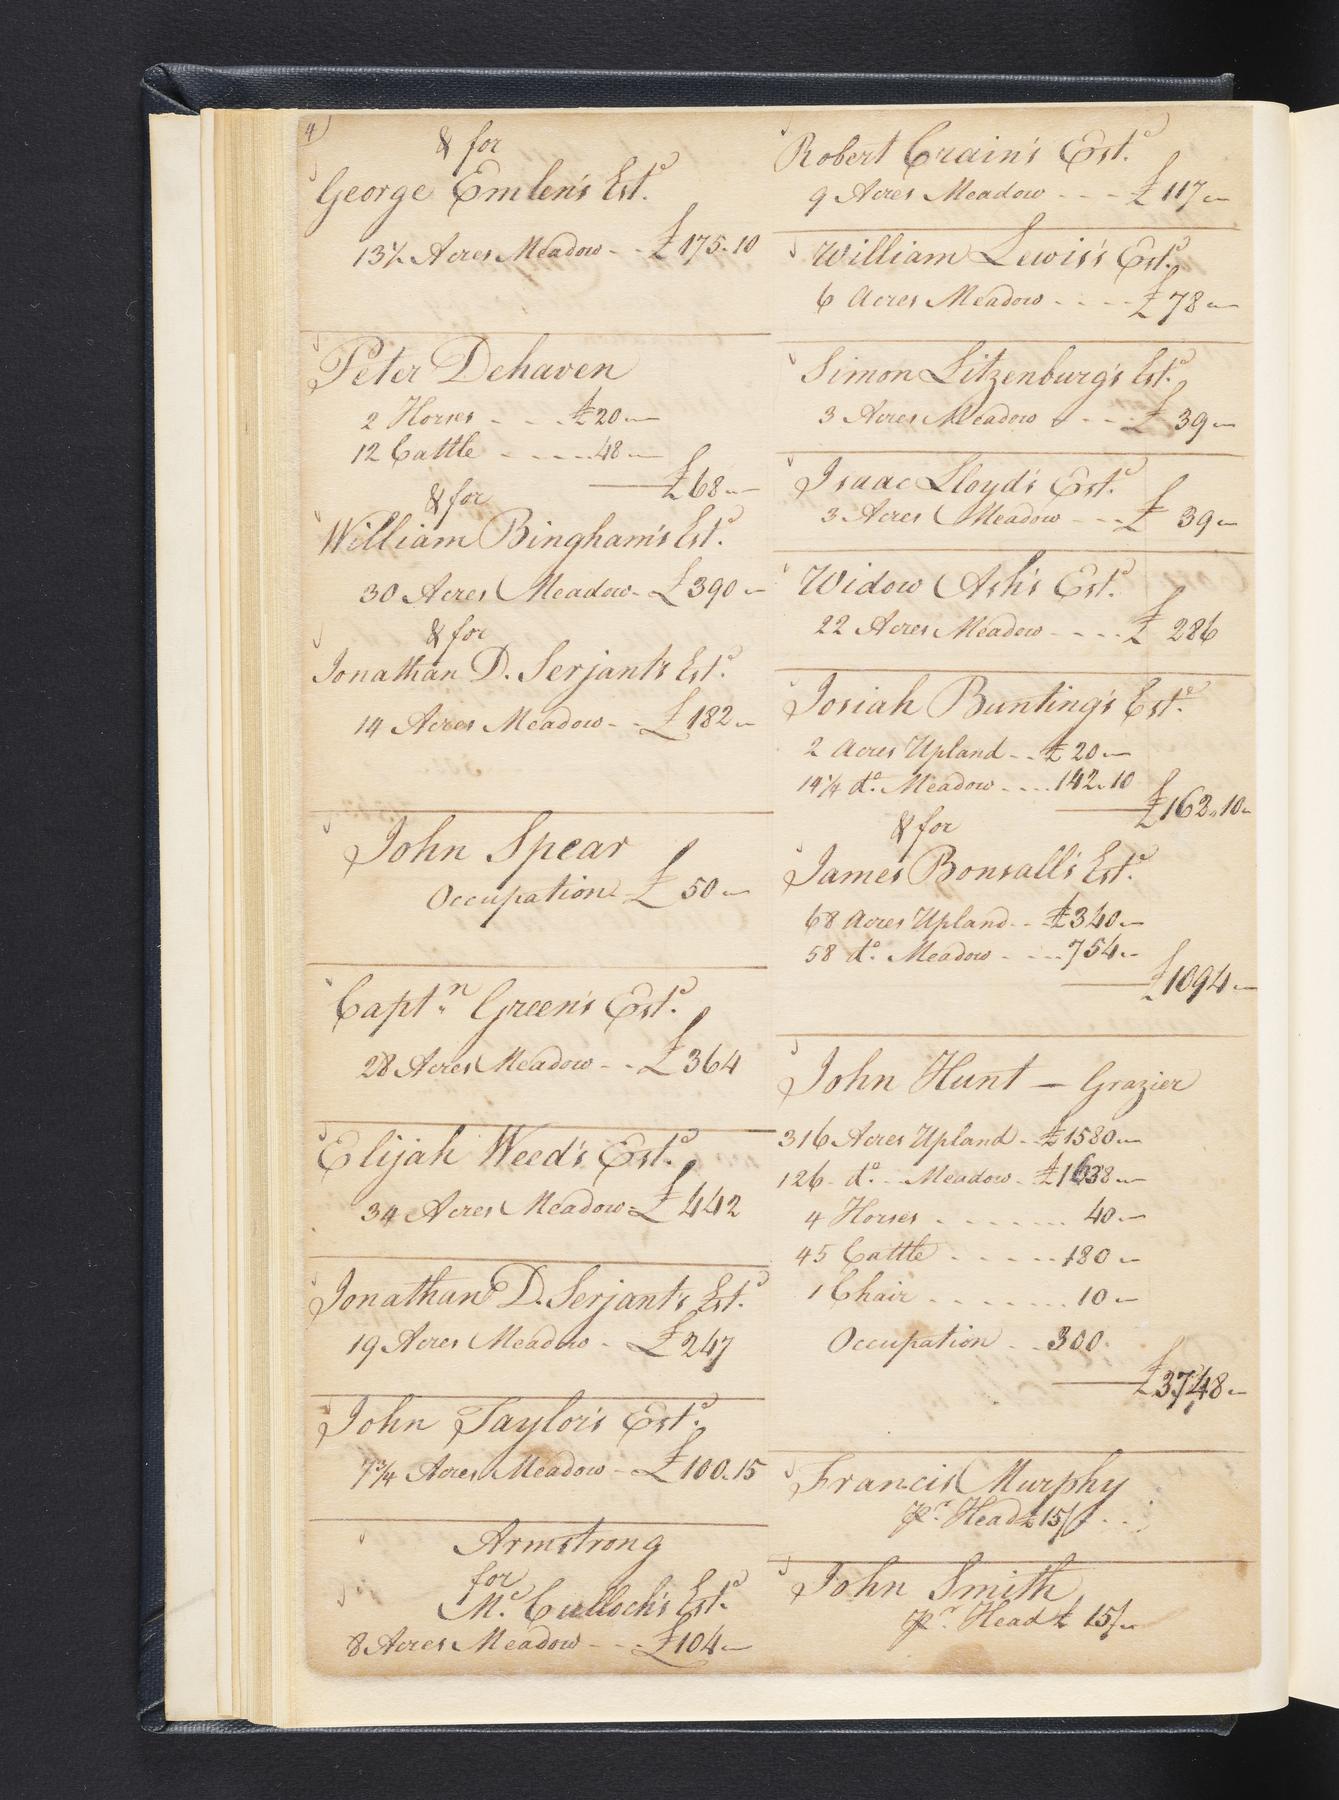 4)
& for
George Emlen's Est.
13½ Acres Meadow - - £175.10
Peter Dehaven
2 Horses - - - £20 —
12 Cattle - - - - 48 —
£68 —
& for
William Bingham's Est.
30 Acres Meadow - £390 —
& for
Jonathan D. Serjant's Est.
14 Acres Meadow - - £182 —
John Spear
Occupation - £50 —
Capt.n Green's Est.
28 Acres Meadow - - £364
Elijah Weed's Est.
34 Acres Meadow - £442
Jonathan D. Serjant's Est.
19 Acres Meadow - £247
John Taylor's Est.
7¾ Acres Meadow - £100.15
Armstrong
for
Mc. Culloch's Est.
8 Acres Meadow - - - £104 —
Robert Crain's Est.
9 Acres Meadow - - - £117 —
William Lewis's Est.
6 Acres Meadow - - - - £78 —
Simon Litzenburg's Est.
3 Acres Meadow - - - £39 —
Isaac Lloyd's Est.
3 Acres Meadow - - - £39 —
Widow Ash's Est.
22 Acres Meadow - - - - £286
Josiah Bunting's Est.
2 Acres Upland - - £20 —
14¼ do. Meadow - - - - 142.10
£162.10 —
& for
James Bonsall's Est.
68 Acres Upland - - £340 —
58 do. Meadow - - - - 754 —
£1094 —
John Hunt — Grazier
316 Acres Upland - £1580 —
126 - do. - Meadow - £1638 —
4 Horses - - - - - - - 40 —
45 Cattle - - - - - - 180 —
1 Chair - - - - - - - 10 —
Occupation - - 300
£3748 —
Francis Murphy
pr. Head £ 15/
John Smith
pr. Head £ 15/ —